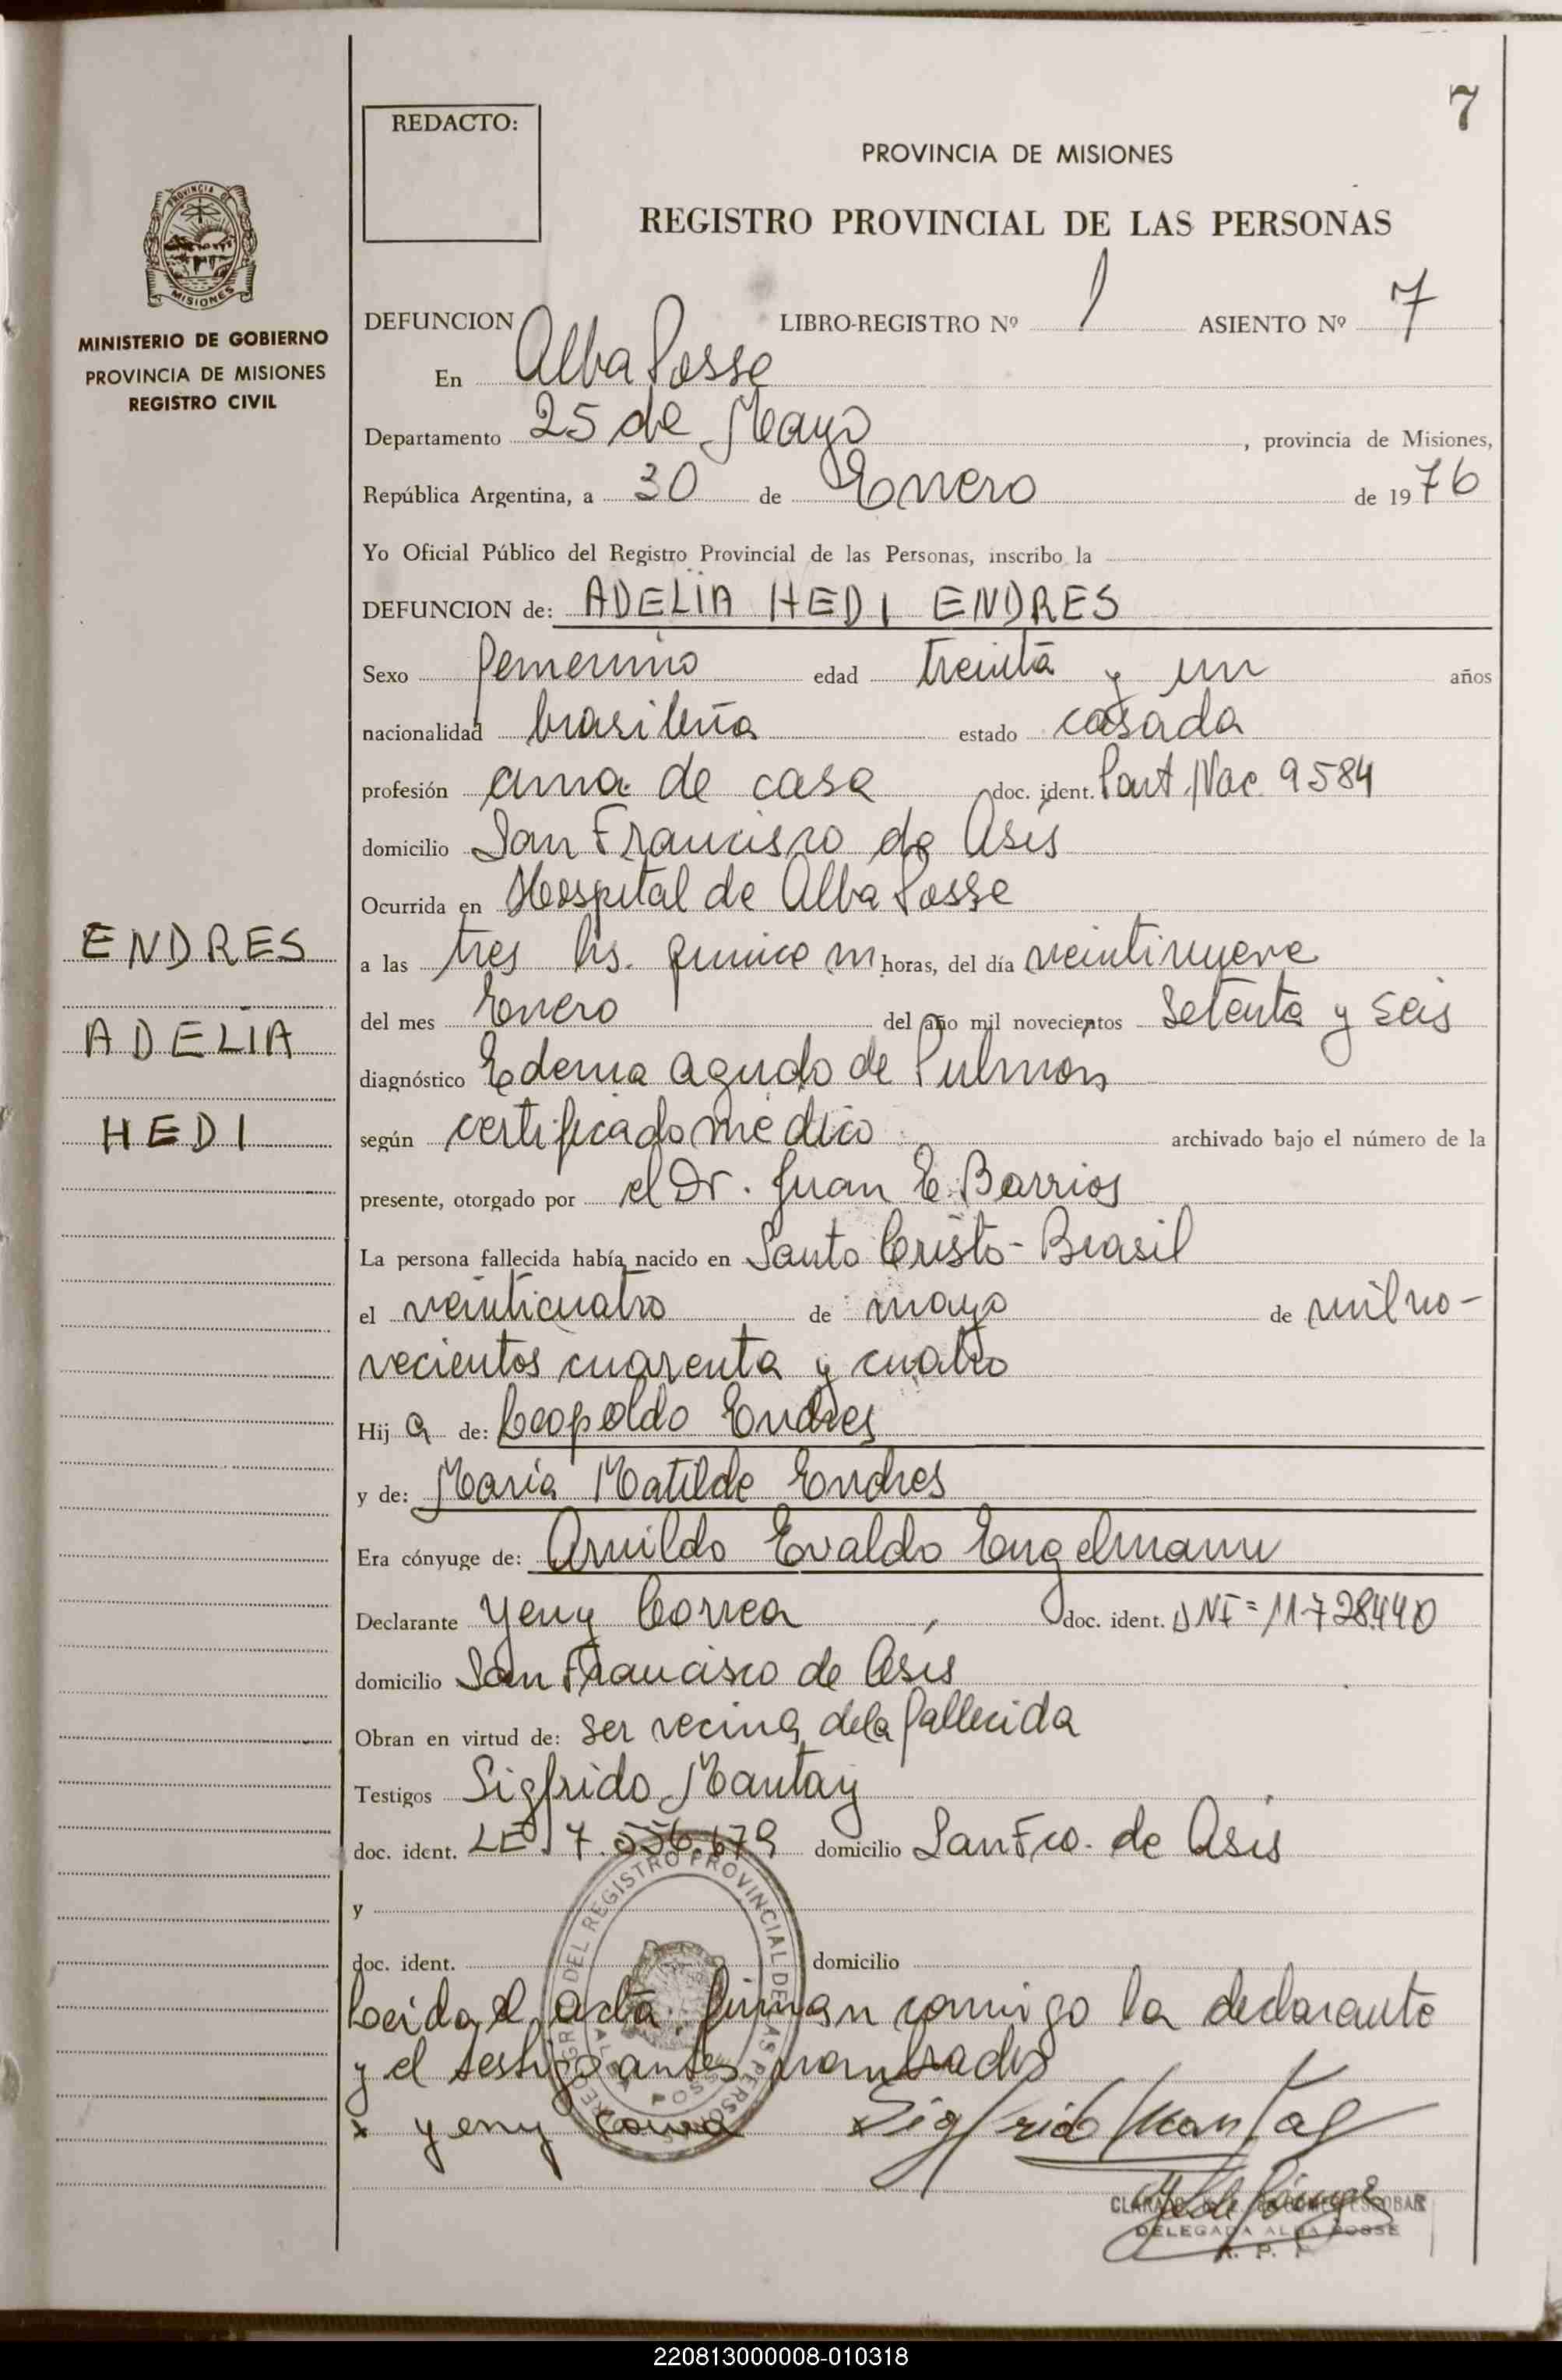 7
REDACTO:
PROVINCIA DE MISIONES
REGISTRO PROVINCIAL DE LAS PERSONAS
PROVINCIA DE
MISIONES
MINISTERIO DE GOBIERNO
PROVINCIA DE MISIONES
REGISTRO CIVIL
DEFUNCION LIBRO-REGISTRO Nº 1 ASIENTO Nº 7
En Alba Posse
Departamento 25 de Mayo, provincia de Misiones,
República Argentina, a 30 de Enero de 1976
Yo Oficial Público del Registro Provincial de las Personas, inscribo la
DEFUNCION de: ADELIA HEDI ENDRES
Sexo femenino edad treinta y un años
nacionalidad brasileña estado casada
profesión ama de casa doc. ident. Part. Nac. 9584
domicilio San Francisco de Asis
Ocurrida en Hospital de Alba Posse
ENDRES
ADELIA
HEDI
a las tres hs. quince m horas, del día veintinueve
del mes Enero del año mil novecientos Setenta y Seis
diagnóstico Edema agudo de Pulmon
según certificado médico archivado bajo el número de la
presente, otorgado por el Dr. Juan E. Barrios
La persona fallecida había nacido en Santo Cristo - Brasil
el veinticuatro de mayo de mil no-
vecientos cuarenta y cuatro
Hija de: Leopoldo Endres
y de: Maria Matilde Endres
Era cónyuge de: Arnildo Evaldo Engelmann
Declarante Yeny Correa, doc. ident. DNI = 11728.440
domicilio San Francisco de Asis
Obran en virtud de: ser vecina de la fallecida
Testigos Sigfrido Mantay
doc. ident. LE. 7.556.679 domicilio San Fco. de Asis
y
doc. ident. domicilio
Leida el acta, firman conmigo la declarante
y el testigo antes nombrados
x yeny Correa x Sigfrido Mantay
DEL REGISTRO PROVINCIAL DE LAS PERSONAS
ESCOBAR
DELEGADA ALBA POSSE
R. P. P.
220813000008-010318